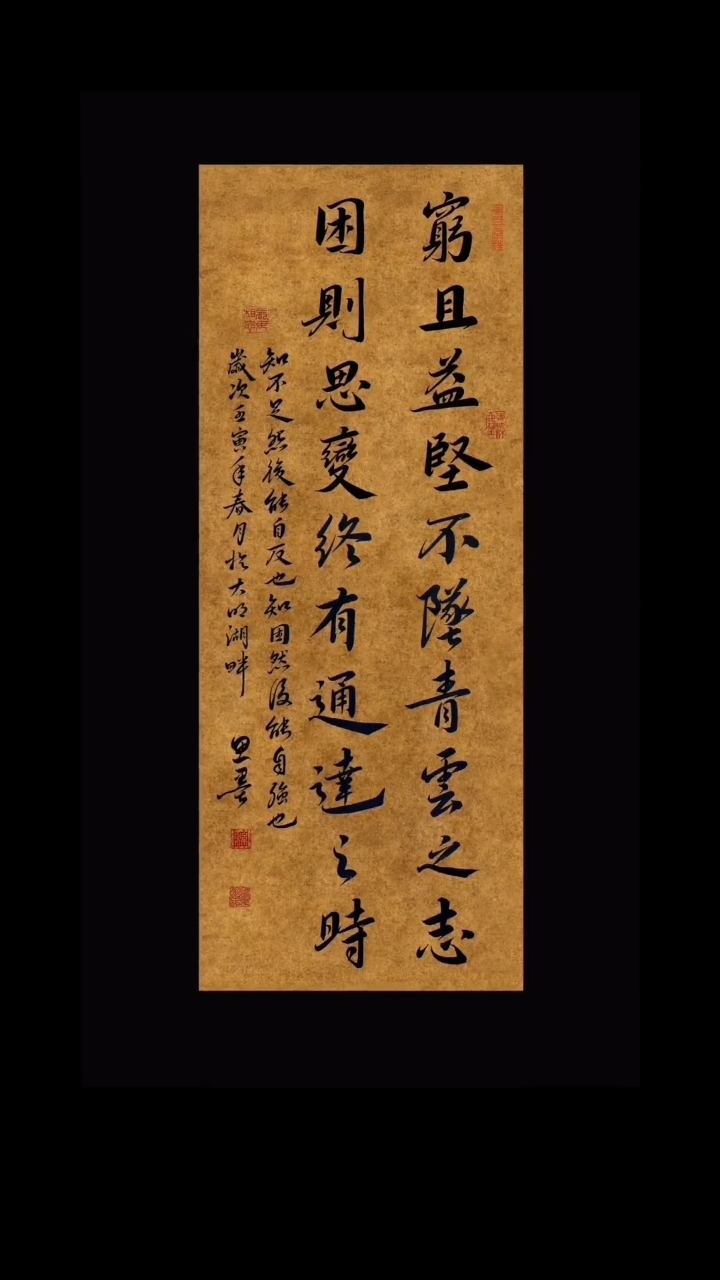 窮且益堅不墜青雲之志
困則思變終有通達之時
知不足然後能自反也知困然後能自強也
歲次壬寅年春月於大明湖畔